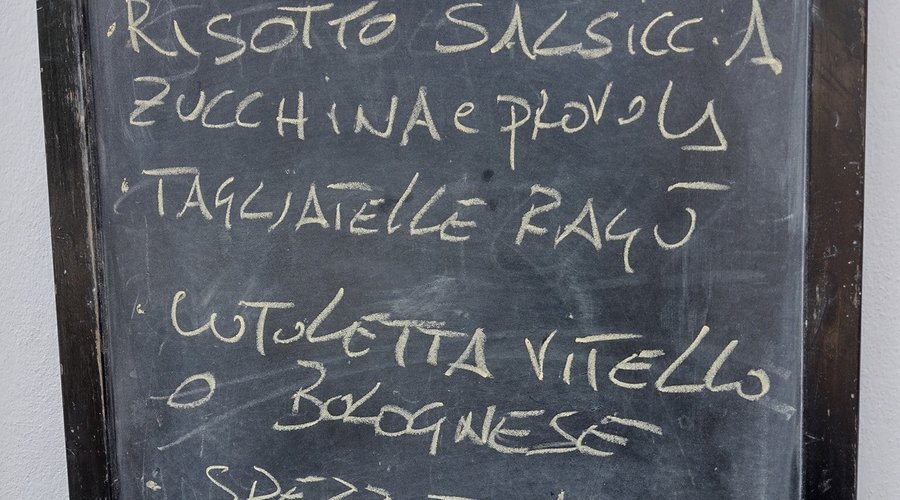 · RISOTTO SALSICCIA
ZUCCHINA e PROVOLA
· TAGLIATELLE RAGÙ
· COTOLETTA VITELLO
O BOLOGNESE